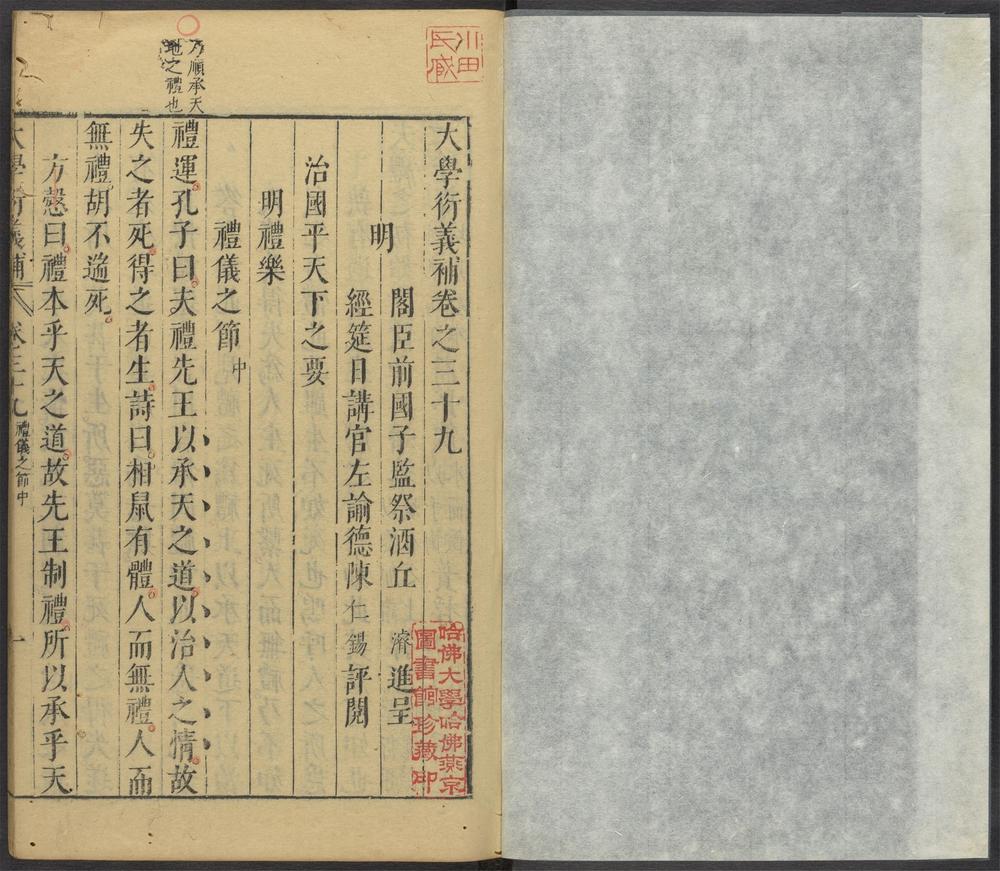 大學衍義補卷之三十九
明
閣臣前國子監祭酒丘濬進呈
經筵日講官左諭德陳仁錫評閱
治國平天下之要
明禮樂
禮儀之節中
乃順承天
地之禮也
禮運孔子曰夫禮先王以承天之道以治人之情故
失之者死得之者生詩曰相鼠有體人而無禮人而
無禮胡不遄死
方愨曰禮本乎天之道故先王制禮所以承乎天
大學衍義補
卷三十九
禮儀之節中
一
小田
氏藏
哈佛大學哈佛燕京
圖書館珍藏印